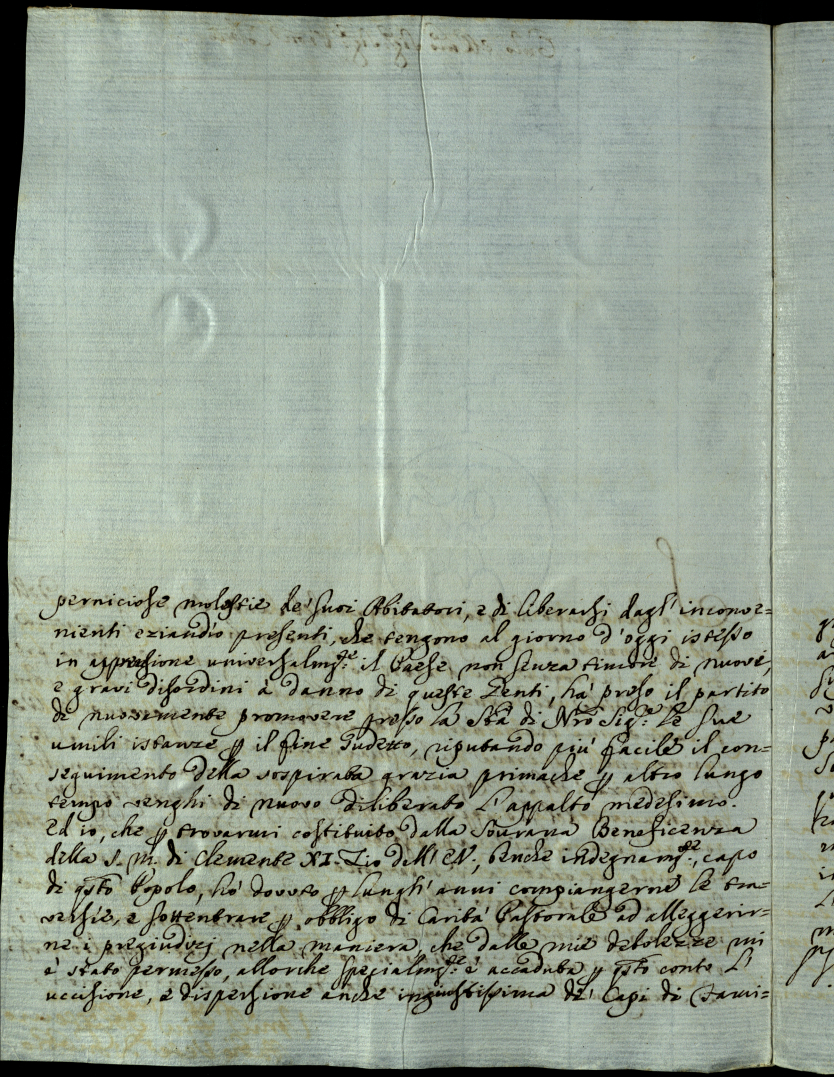 perniciose molestie de' suoi Abitatori, e di liberarsi dagl' inconve=
nienti eziandio presenti, che tengono al giorno d'oggi istesso
in apprensione universalm.te il Paese non senza timore di nuovi,
e gravi disordini à danno di queste Genti, hà preso il partito
di nuovamente promovere presso la Stà di Nro Sig.re le sue
umili istanze p il fine sudetto, riputando più facile il con=
seguimento della sospirata grazia primache p altro lungo
tempo venghi di nuovo diliberato l'appalto medesimo.
Ed io, che p trovarmi costituito dalla Sovrana Beneficenza
della S. M. di Clemente XI. Zio dell' EV., benche indegnam.te, capo
di qsto Popolo, hò dovuto p lunghi anni compiangerne le tra=
versie, e sottentrare p obbligo di Carità Pastorale ad alleggerir=
ne i pregiudizj nella maniera, che dalle mie debolezze mi
è stato permesso, allorche specialm.te è accaduta p qsto conto l'
uccisione, e dispersione anche ingiustissima de' Capi di Fami=